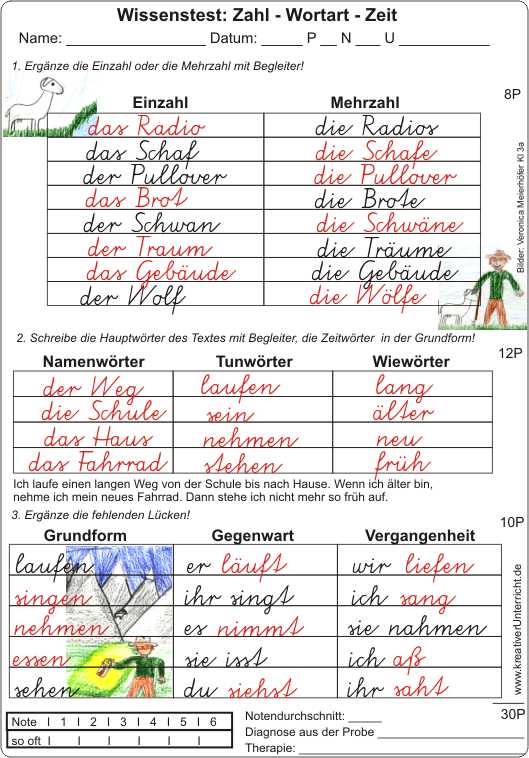 Wissenstest: Zahl - Wortart - Zeit
Name: _________________ Datum: _____ P __ N ___ U ___________
1. Ergänze die Einzahl oder die Mehrzahl mit Begleiter!
8P
Einzahl Mehrzahl
das Radio die Radios
das Schaf die Schafe
der Pullover die Pullover
das Brot die Brote
der Schwan die Schwäne
der Traum die Träume
das Gebäude die Gebäude
der Wolf die Wölfe
Bilder: Veronica Meierhöfer Kl 3a
2. Schreibe die Hauptwörter des Textes mit Begleiter, die Zeitwörter in der Grundform!
12P
Namenwörter Tunwörter Wiewörter
der Weg laufen lang
die Schule sein älter
das Haus nehmen neu
das Fahrrad stehen früh
Ich laufe einen langen Weg von der Schule bis nach Hause. Wenn ich älter bin,
nehme ich mein neues Fahrrad. Dann stehe ich nicht mehr so früh auf.
3. Ergänze die fehlenden Lücken!
10P
Grundform Gegenwart Vergangenheit
laufen er läuft wir liefen
singen ihr singt ich sang
nehmen es nimmt sie nahmen
essen sie isst ich aß
sehen du siehst ihr saht
www.kreativerUnterricht.de
30P
Note I 1 I 2 I 3 I 4 I 5 I 6
so oft I I I I I I
Notendurchschnitt: _____
Diagnose aus der Probe __________________
Therapie: ____________________________